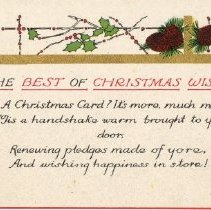 HE BEST OF CHRISTMAS WIS
A Christmas Card? It's more, much m
'Tis a handshake warm brought to y
door.
Renewing pledges made of yore,
And wishing happiness in store!